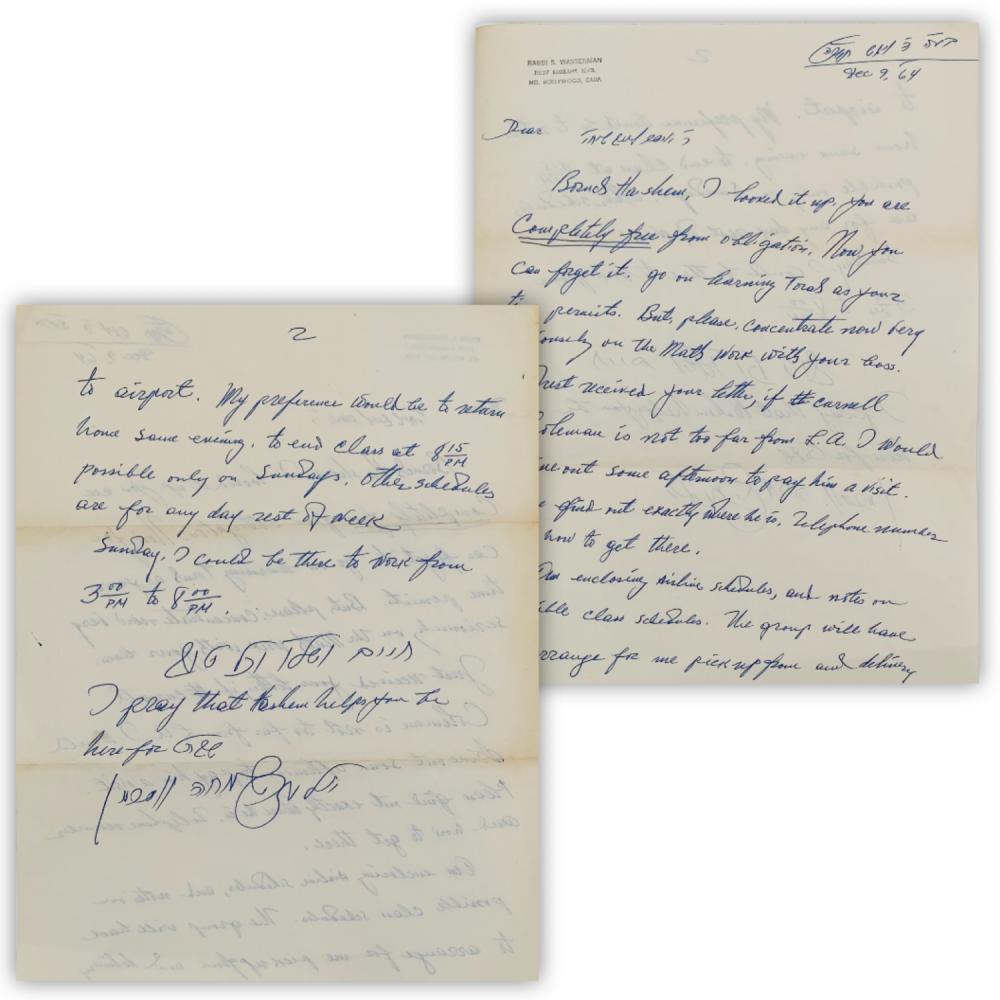 RABBI S. WASSERMAN
NO. HOLLYWOOD, CALIF.
Dec 9, 64
Dear
Boruch Hashem, I looked it up, you are
Completely free from obligation. Now you
can forget it. go on learning Torah as your
permits. But, please, concentrate now very
on the Math work with your boss.
received your letter, if Carnell
oleman is not too far from L.A. I would
out some afternoon to pay him a visit.
find out exactly where he is, Telephone number
how to get there.
enclosing Airline schedules, and notes on
ible class schedules. The group will have
rrange for me pick up from and delivery
2
to airport. My preference would be to return
home same evening, to end class at 8 15 PM
possible only on Sundays. Other schedules
are for any day rest of week
Sunday, I could be there to work from
3 00 PM to 8 00 PM.
I pray that Hashem helps you be
here for שבת
שמחה וואסרמן